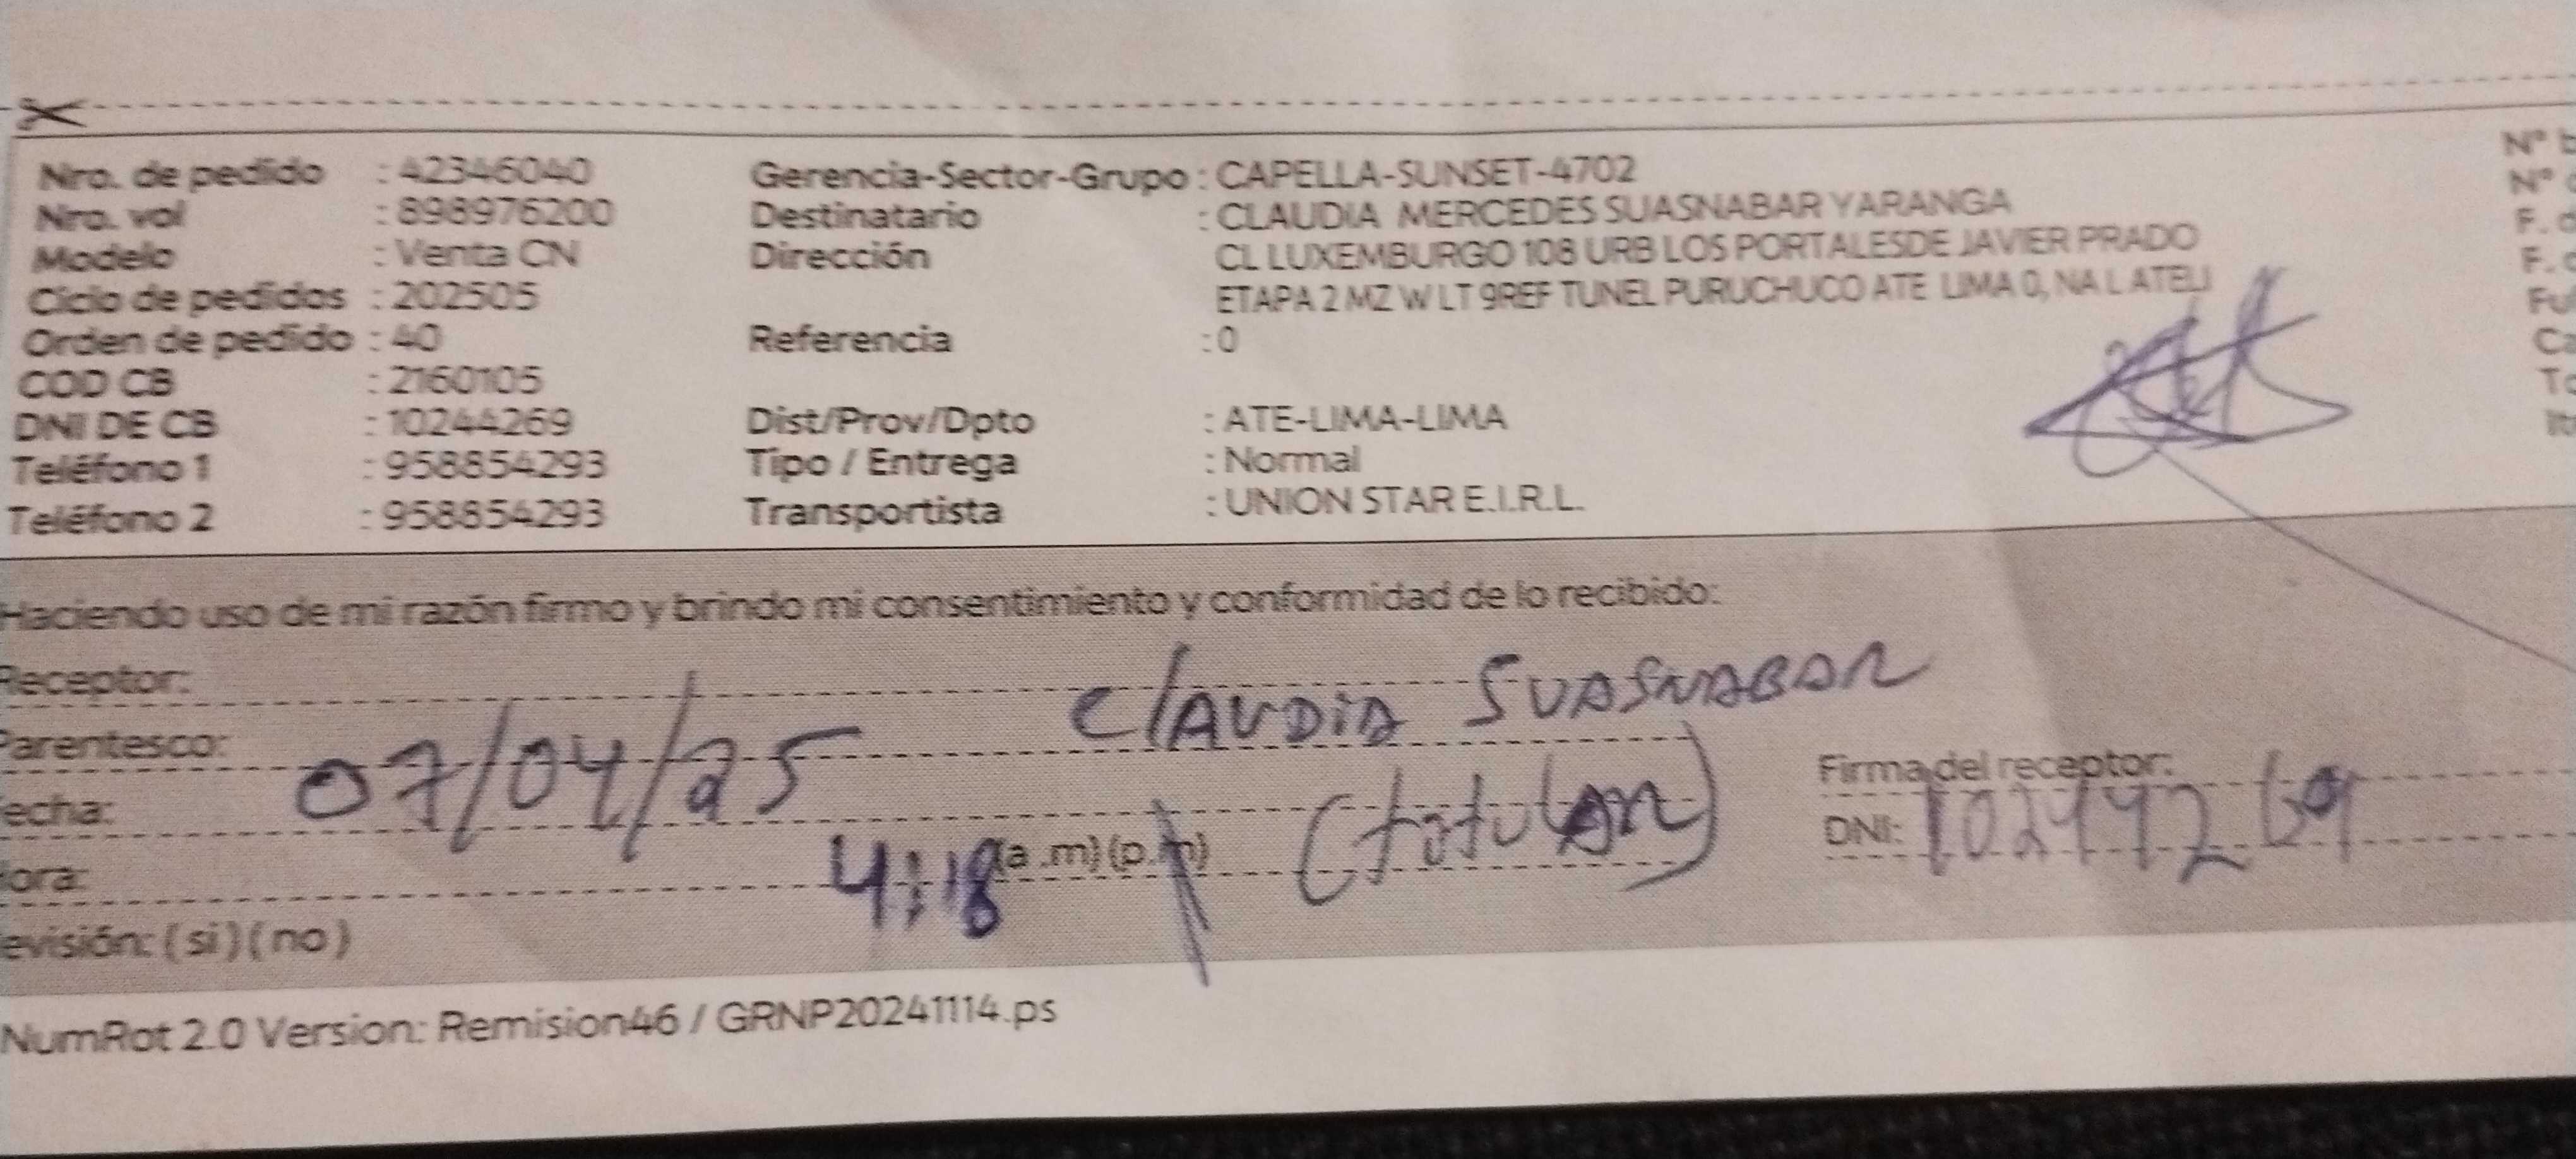 Nro. de pedido : 42346040 Gerencia-Sector-Grupo : CAPELLA-SUNSET-4702 N°
Nro. vol : 898976200 Destinatario : CLAUDIA MERCEDES SUASNABAR YARANGA N°
Modelo : Venta CN Dirección CL LUXEMBURGO 108 URB LOS PORTALESDE JAVIER PRADO F.
Ciclo de pedidos : 202505 ETAPA 2 MZ W LT 9REF TUNEL PURUCHUCO ATE LIMA 0, NA L ATELI F.
Orden de pedido : 40 Referencia : 0
COD CB : 2160105
DNI DE CB : 10244269 Dist/Prov/Dpto : ATE-LIMA-LIMA
Teléfono 1 : 958854293 Tipo / Entrega : Normal
Teléfono 2 : 958854293 Transportista : UNION STAR E.I.R.L.
Haciendo uso de mi razón firmo y brindo mi consentimiento y conformidad de lo recibido:
Receptor: Claudia Suasnabar
Parentesco: (titular)
echa: 07/04/25
ora: 4:18 (a .m) (p.m)
evisión: ( si ) ( no )
Firma del receptor:
DNI: 10244269
NumRot 2.0 Version: Remision46 / GRNP20241114.ps